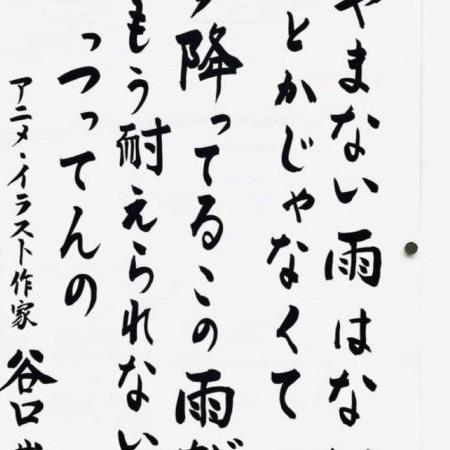 やまない雨はな
とかじゃなくて
降ってるこの雨が
もう耐えられない
っつってんの
アニメ・イラスト作家 谷口